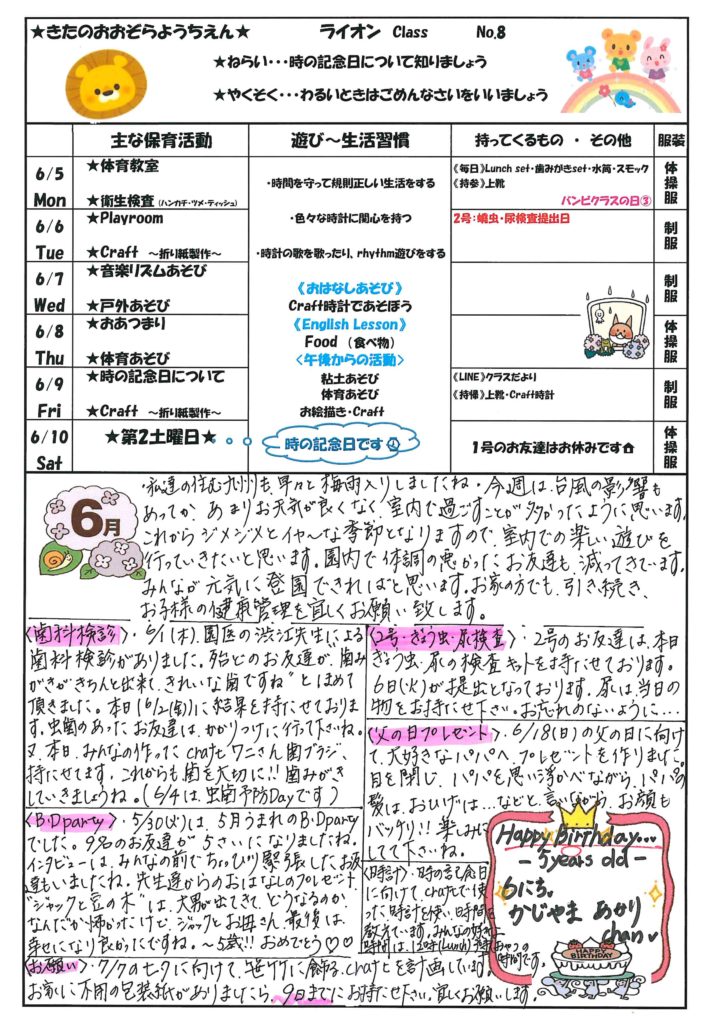 ★きたのおおぞらようちえん★　ライオン Class　No.8
★ねらい・・・時の記念日について知りましょう
★やくそく・・・わるいときはごめんなさいをいいましょう
主な保育活動　遊び～生活習慣　持ってくるもの ・ その他　服装
6/5 Mon
★体育教室
★衛生検査（ハンカチ・ツメ・ティッシュ）
・時間を守って規則正しい生活をする
《毎日》Lunch set・歯みがきset・水筒・スモック
《持参》上靴
バンビクラスの日③
体操服
6/6 Tue
★Playroom
★Craft ～折り紙製作～
・色々な時計に関心を持つ
・時計の歌を歌ったり、rhythm遊びをする
2号：蟯虫・尿検査提出日
制服
6/7 Wed
★音楽リズムあそび
★戸外あそび
《おはなしあそび》
Craft時計であそぼう
制服
6/8 Thu
★おあつまり
★体育あそび
《English Lesson》
Food （食べ物）
<午後からの活動>
体操服
6/9 Fri
★時の記念日について
★Craft ～折り紙製作～
粘土あそび
体育あそび
お絵描き・Craft
《LINE》クラスだより
《持帰》上靴・Craft時計
制服
6/10 Sat
★第2土曜日★
時の記念日です
1号のお友達はお休みです
体操服
6月
・私達の住む九州も、早々と梅雨入りしましたね。今週は、台風の影響も
あってか、あまりお天気が良くなく、室内で過ごすことが多かったように思います。
これからジメジメとイヤ～な季節となりますので、室内での楽しい遊びを
行っていきたいと思います。園内で体調の悪かったお友達も、減ってきています。
みんなが元気に登園できればと思います。お家の方でも、引き続き、
お子様の健康管理を宜しくお願い致します。
<歯科検診>・6/1(木)、園医の渋江先生による
歯科検診がありました。殆どのお友達が、歯み
がきがきちんと出来、きれいな歯ですね”とほめて
頂きました。本日(6/2(金))に結果を持たせておりま
す。虫歯のあったお友達は、かかりつけに行って下さいね。
又、本日、みんなの作ったcraftとワニさん歯ブラシ、
持たせてます。これからも歯を大切に!!歯みがき
していきましょうね。(6/4は、虫歯予防Dayです)
<2号・ぎょう虫・尿検査>・2号のお友達は、本日
ぎょう虫・尿の検査キットを持たせております。
6日(火)が提出となっております。尿は当日の
物をお持たせ下さい。お忘れのないように…
<父の日プレゼント>・6/18(日)の父の日に向け
て、大好きなパパへ、プレゼントを作りました。
目を閉じ、パパを思い浮かべながら、パパの
髪は、おひげは…などと言いながら、お顔も
バッチリ!!楽しみに
してて下さいね。
<B・Dparty>・5/30(火)は、5月うまれのB・Dparty
でした。9名のお友達が5さいになりましたね。
インタビューは、みんなの前でちょっぴり緊張したお友
達もいましたね。先生達からのおはなしのプレゼント
“ジャックと豆の木”は、大男が出てきて、どうなるのか、
なんだか怖かったけど、ジャックとお母さん、最後は、
幸せになり良かったですね。～5歳!!おめでとう♡♡
<時計>・時の記念日
に向けて、craftで使
った時計を使い、時間を
教えています。みんなの好きな
時間は、12時(Lunch)
Happy Birthday...
- 5years old -
6にち。
かじやま あかり
chan
HAPPY BIRTHDAY
<お願い>・7/7の七夕に向けて、笹竹に飾るcraftを計画しています。
お家に不用の包装紙がありましたら、9日までにお持ち下さい。宜しくお願いします。